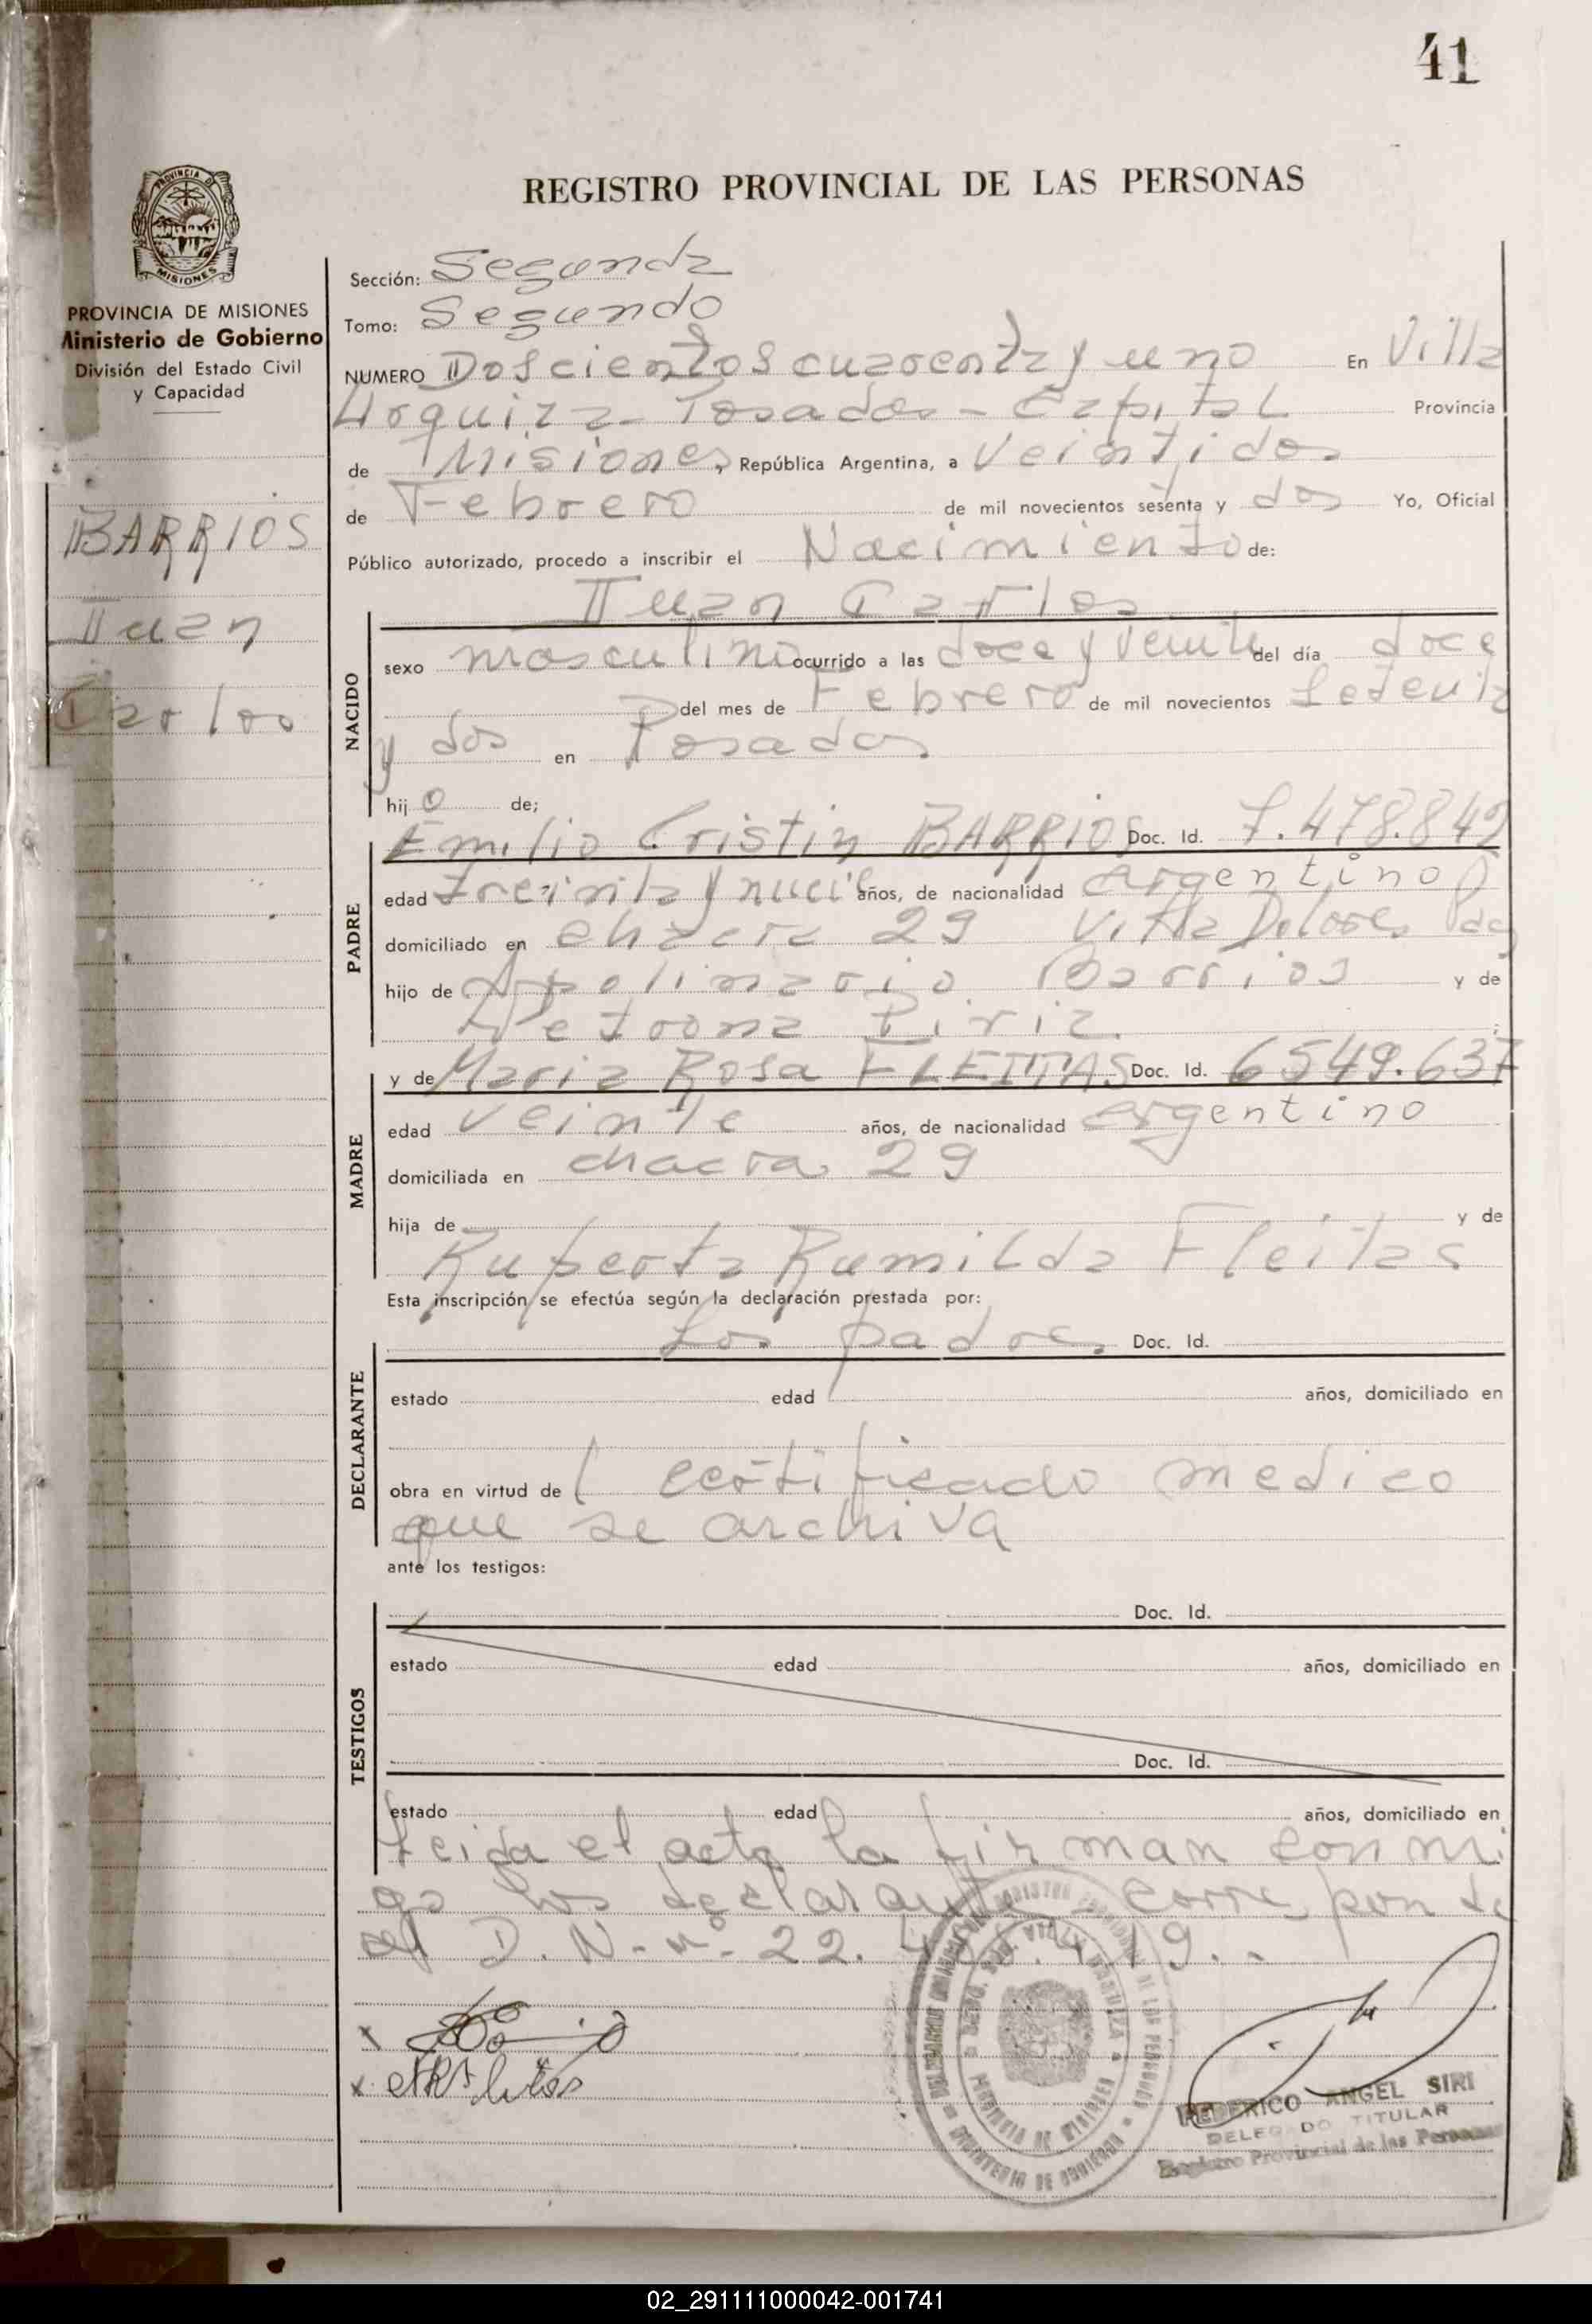 41
REGISTRO PROVINCIAL DE LAS PERSONAS
PROVINCIA DE MISIONES
Ministerio de Gobierno
División del Estado Civil
y Capacidad
BARRIOS
Juan
Carlos
Sección: Segunda
Tomo: Segundo
NUMERO Doscientos cuarenta y uno En Villa
Urquiza - Posadas - Capital Provincia
de Misiones, República Argentina, a Veintidos
de Febrero de mil novecientos sesenta y dos Yo, Oficial
Público autorizado, procedo a inscribir el Nacimiento de:
Juan Carlos
NACIDO
sexo masculino ocurrido a las doce y veinte del día doce
del mes de Febrero de mil novecientos
y dos en Posadas
hijo de;
PADRE
Emilio Cristin BARRIOS Doc. Id. 7.478.842
edad treinta y nueve años, de nacionalidad argentino
domiciliado en chacra 29 Villa Dolores
hijo de Apolinario Barrios y de
Petrona Piriz
MADRE
y de Maria Rosa FLEITAS Doc. Id. 6549.637
edad veinte años, de nacionalidad argentino
domiciliada en chacra 29
hija de y de
Ruperta Rumilda Fleitas
Esta inscripción se efectúa según la declaración prestada por:
DECLARANTE
Los padres Doc. Id.
estado edad años, domiciliado en
obra en virtud de l certificado medico
que se archiva
ante los testigos:
TESTIGOS
Doc. Id.
estado edad años, domiciliado en
Doc. Id.
estado edad años, domiciliado en
Leida el acta la firman conmi
go los declarantes corresponde
el D. N. nº 22. 419..
FEDERICO ANGEL SIRI
DELEGADO TITULAR
Registro Provincial de las Personas
02_291111000042-001741